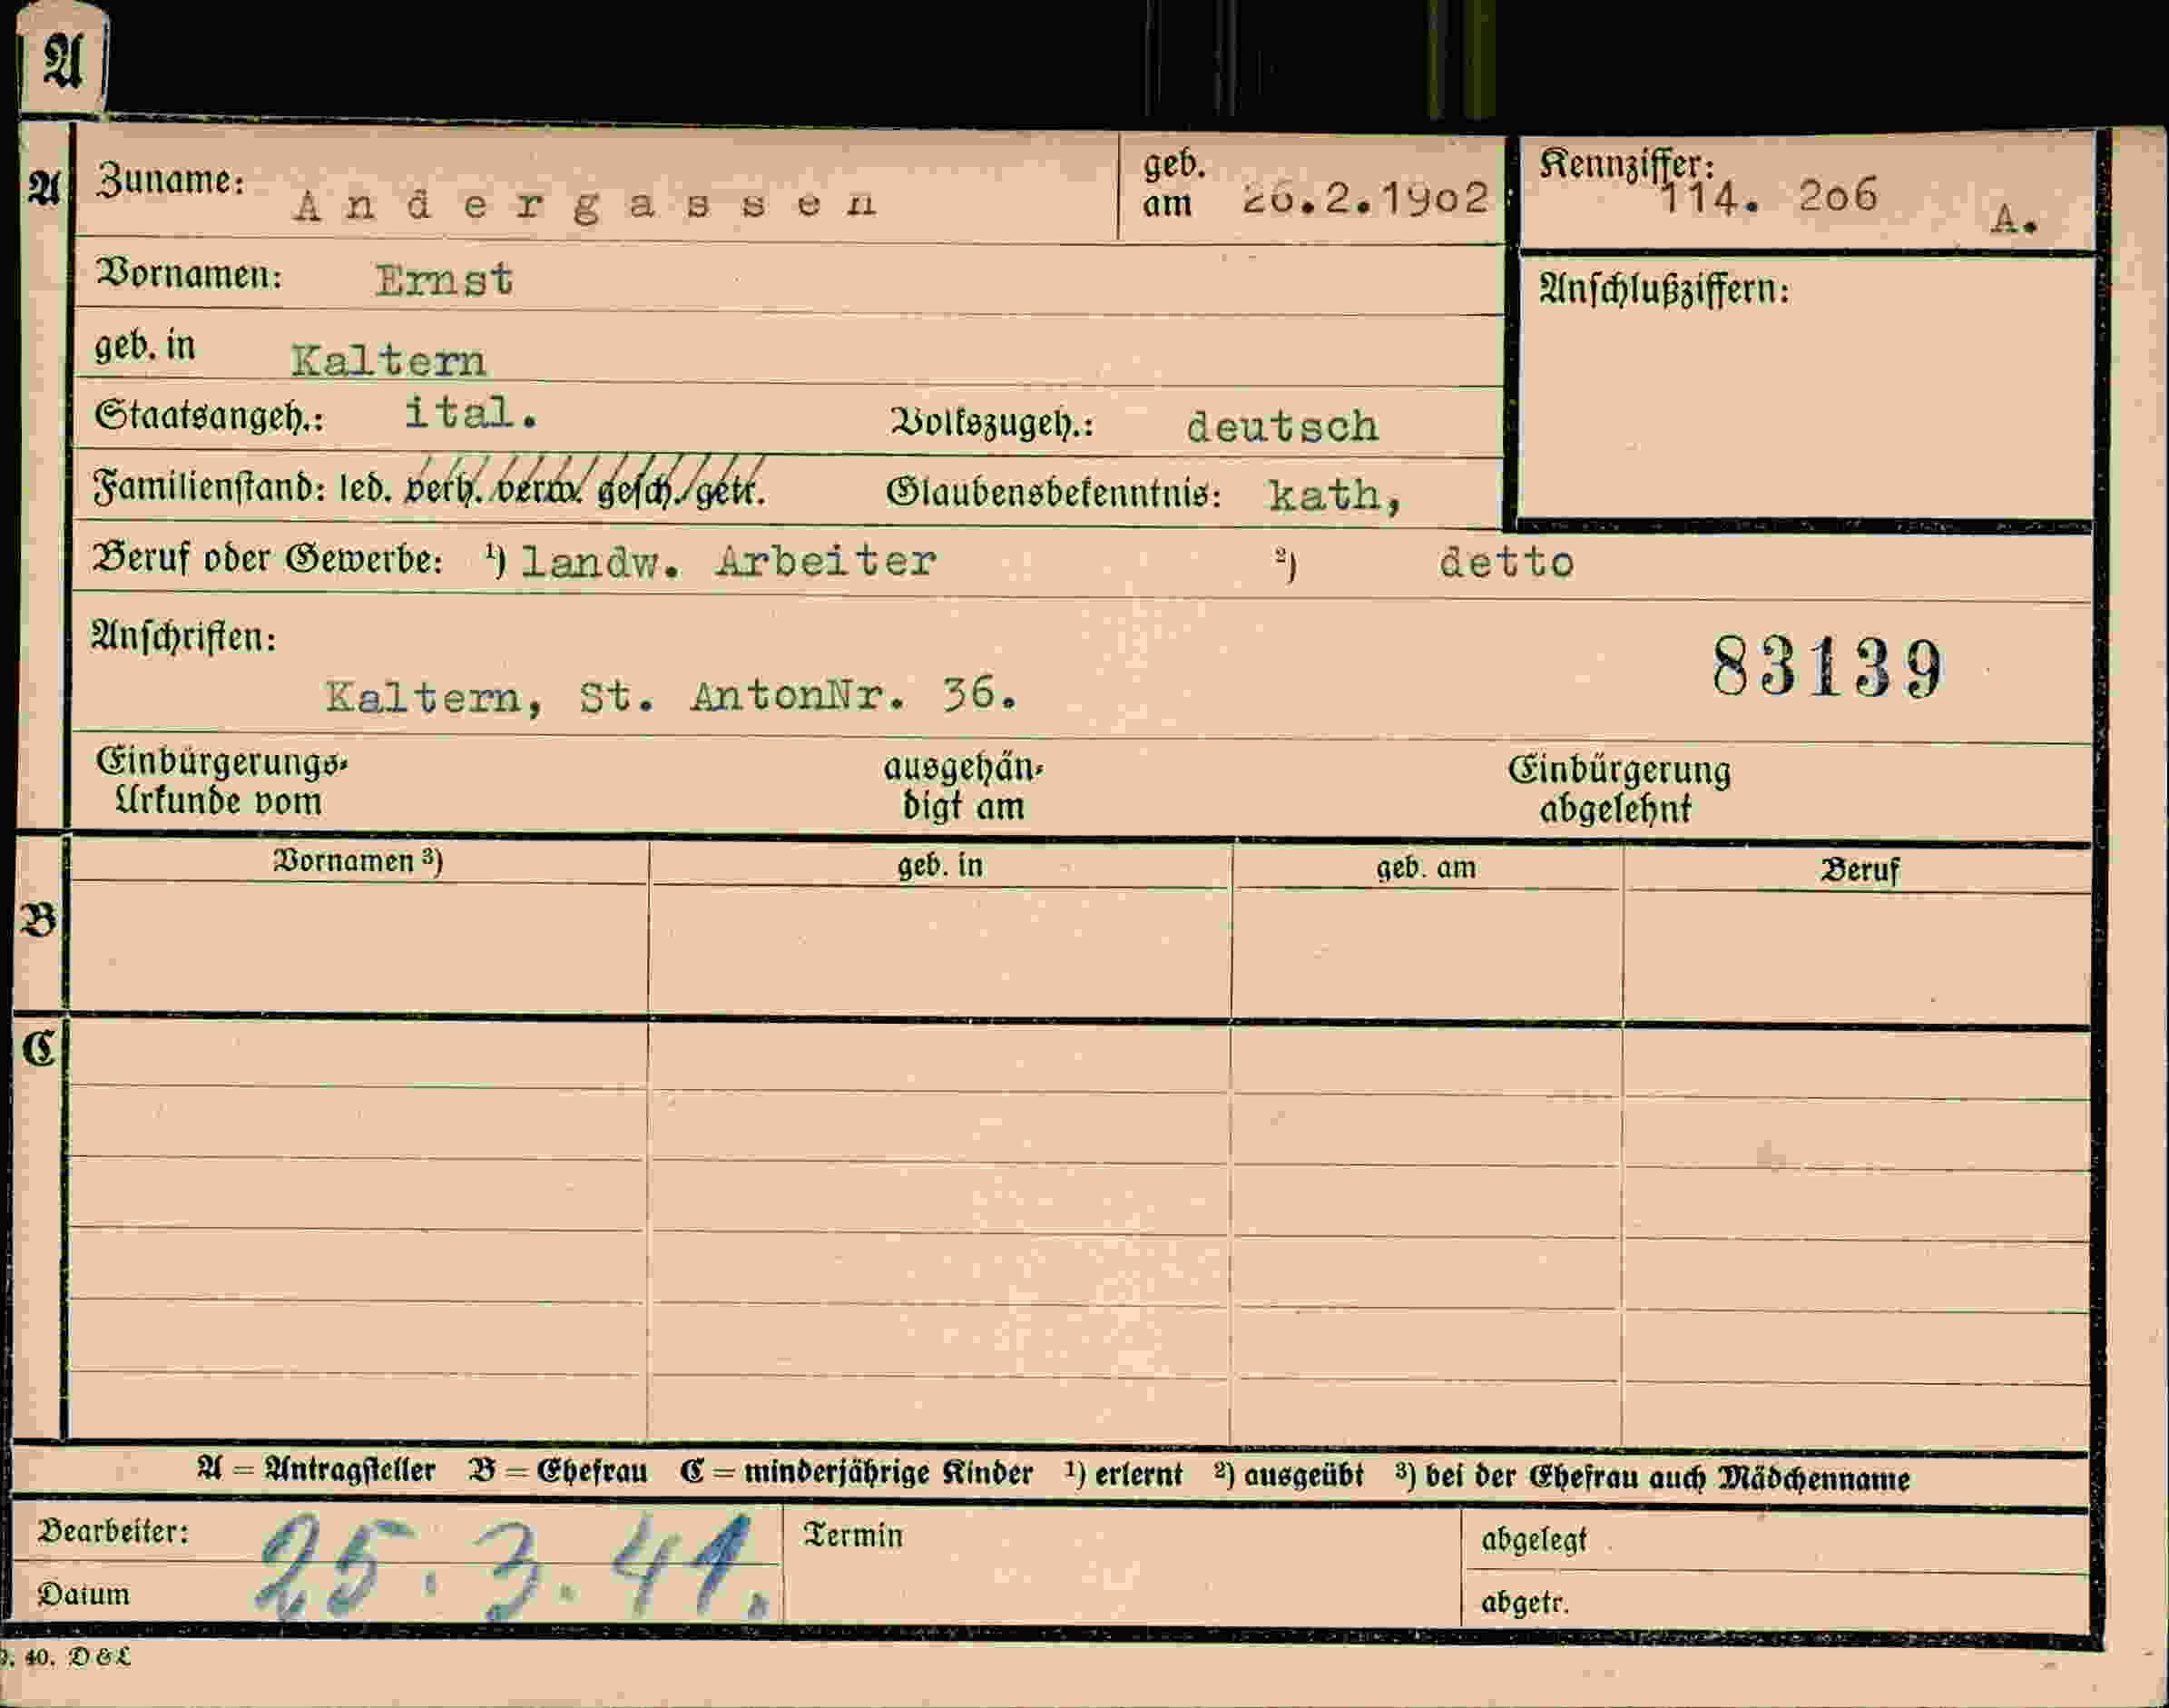 A
A Zuname: Andergassen geb. am 26.2.1902 Kennziffer: 114. 2o6 A.
Vornamen: Ernst Anschlußziffern:
geb. in Kaltern
Staatsangeh.: ital. Volkszugeh.: deutsch
Familienstand: led. verh. verw. gesch. getr. Glaubensbekenntnis: kath,
Beruf oder Gewerbe: ¹) landw. Arbeiter ²) detto
Anschriften: 83139
Kaltern, St. AntonNr. 36.
Einbürgerungs- ausgehän- Einbürgerung
Urkunde vom digt am abgelehnt
Vornamen ³) geb. in geb. am Beruf
B
C
A = Antragsteller B = Ehefrau C = minderjährige Kinder ¹) erlernt ²) ausgeübt ³) bei der Ehefrau auch Mädchenname
Bearbeiter: 25.3.41. Termin abgelegt
Datum abgetr.
40. D & L